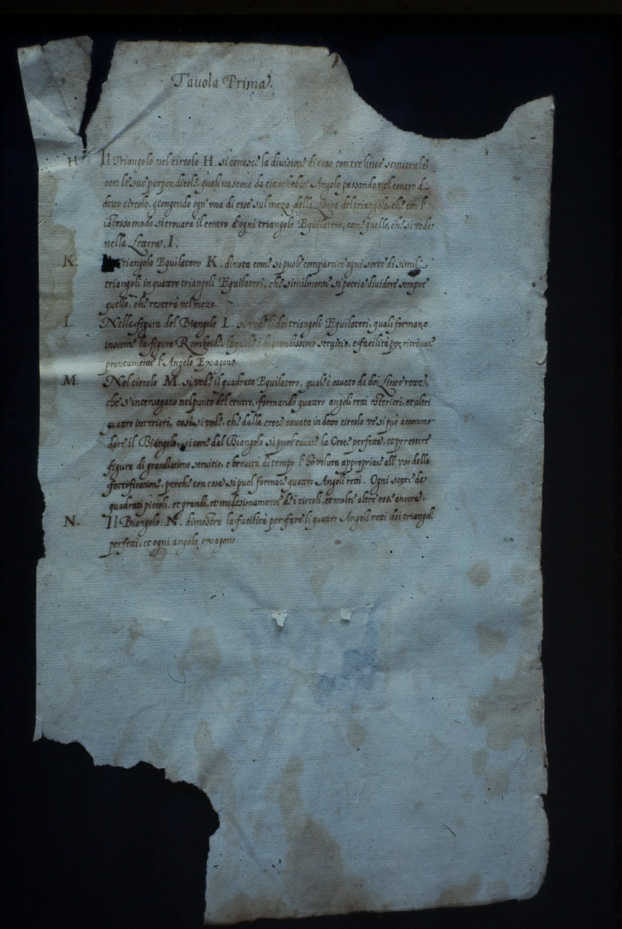 Tauola Prima.
H. Il Triangolo nel circolo H. si conosce la diuisione di esso con tre linee semitrale
con le sue perpendicoli, quali nascono da ciaschedun' Angolo passando nel centro di
detto circolo, giongendo ogn' vna di esse sul mezo della Linea del triangolo, che con l'
istesso modo si trouara il centro d'ogni triangolo Equilatero, com' quello, che si vede
nella Lettera I.
K. Triangolo Equilatero K. dinota come si puole compartire ogni sorte di simil
triangoli in quattro triangoli Equilateri, che similmenti si potria diuidere sempre
quello, che restarà nel mezo.
L. Nella figura del Biangolo L. si li doi triangoli Equilateri, quali formano
insieme la figura Romboide, la quale è di grandissimo seruitio, e facilità per ritrouar
prontamente l'Angolo Exagono.
M. Nel circolo M. si vede il quadrato Equilatero, qual' è cauato da doi Linee rette,
che s'intersegano nel punto del centro, formando quattro angoli retti esteriori, et altri
quattro interiori, cosi si vede, che dalla croce cauata in detto circolo ve si può accomo-
dare il Biangolo, si come dal Biangolo si puol cauar la Croce perfetta, et per essere
figura di grandissimo seruitio, e breuità di tempo l' hò voluta appropriar all' vso della
fortificatione, perche con essa si puol formar quattro Angoli retti. Ogni sorte de
quadrati piccoli, et grandi, et medesimamente de i circoli, et molte altre cose ancora.
N. Il Biangolo. N. dimostra la facilità per fare li quattro Angoli retti dei triangoli
perfetti, et ogni angolo exagono.